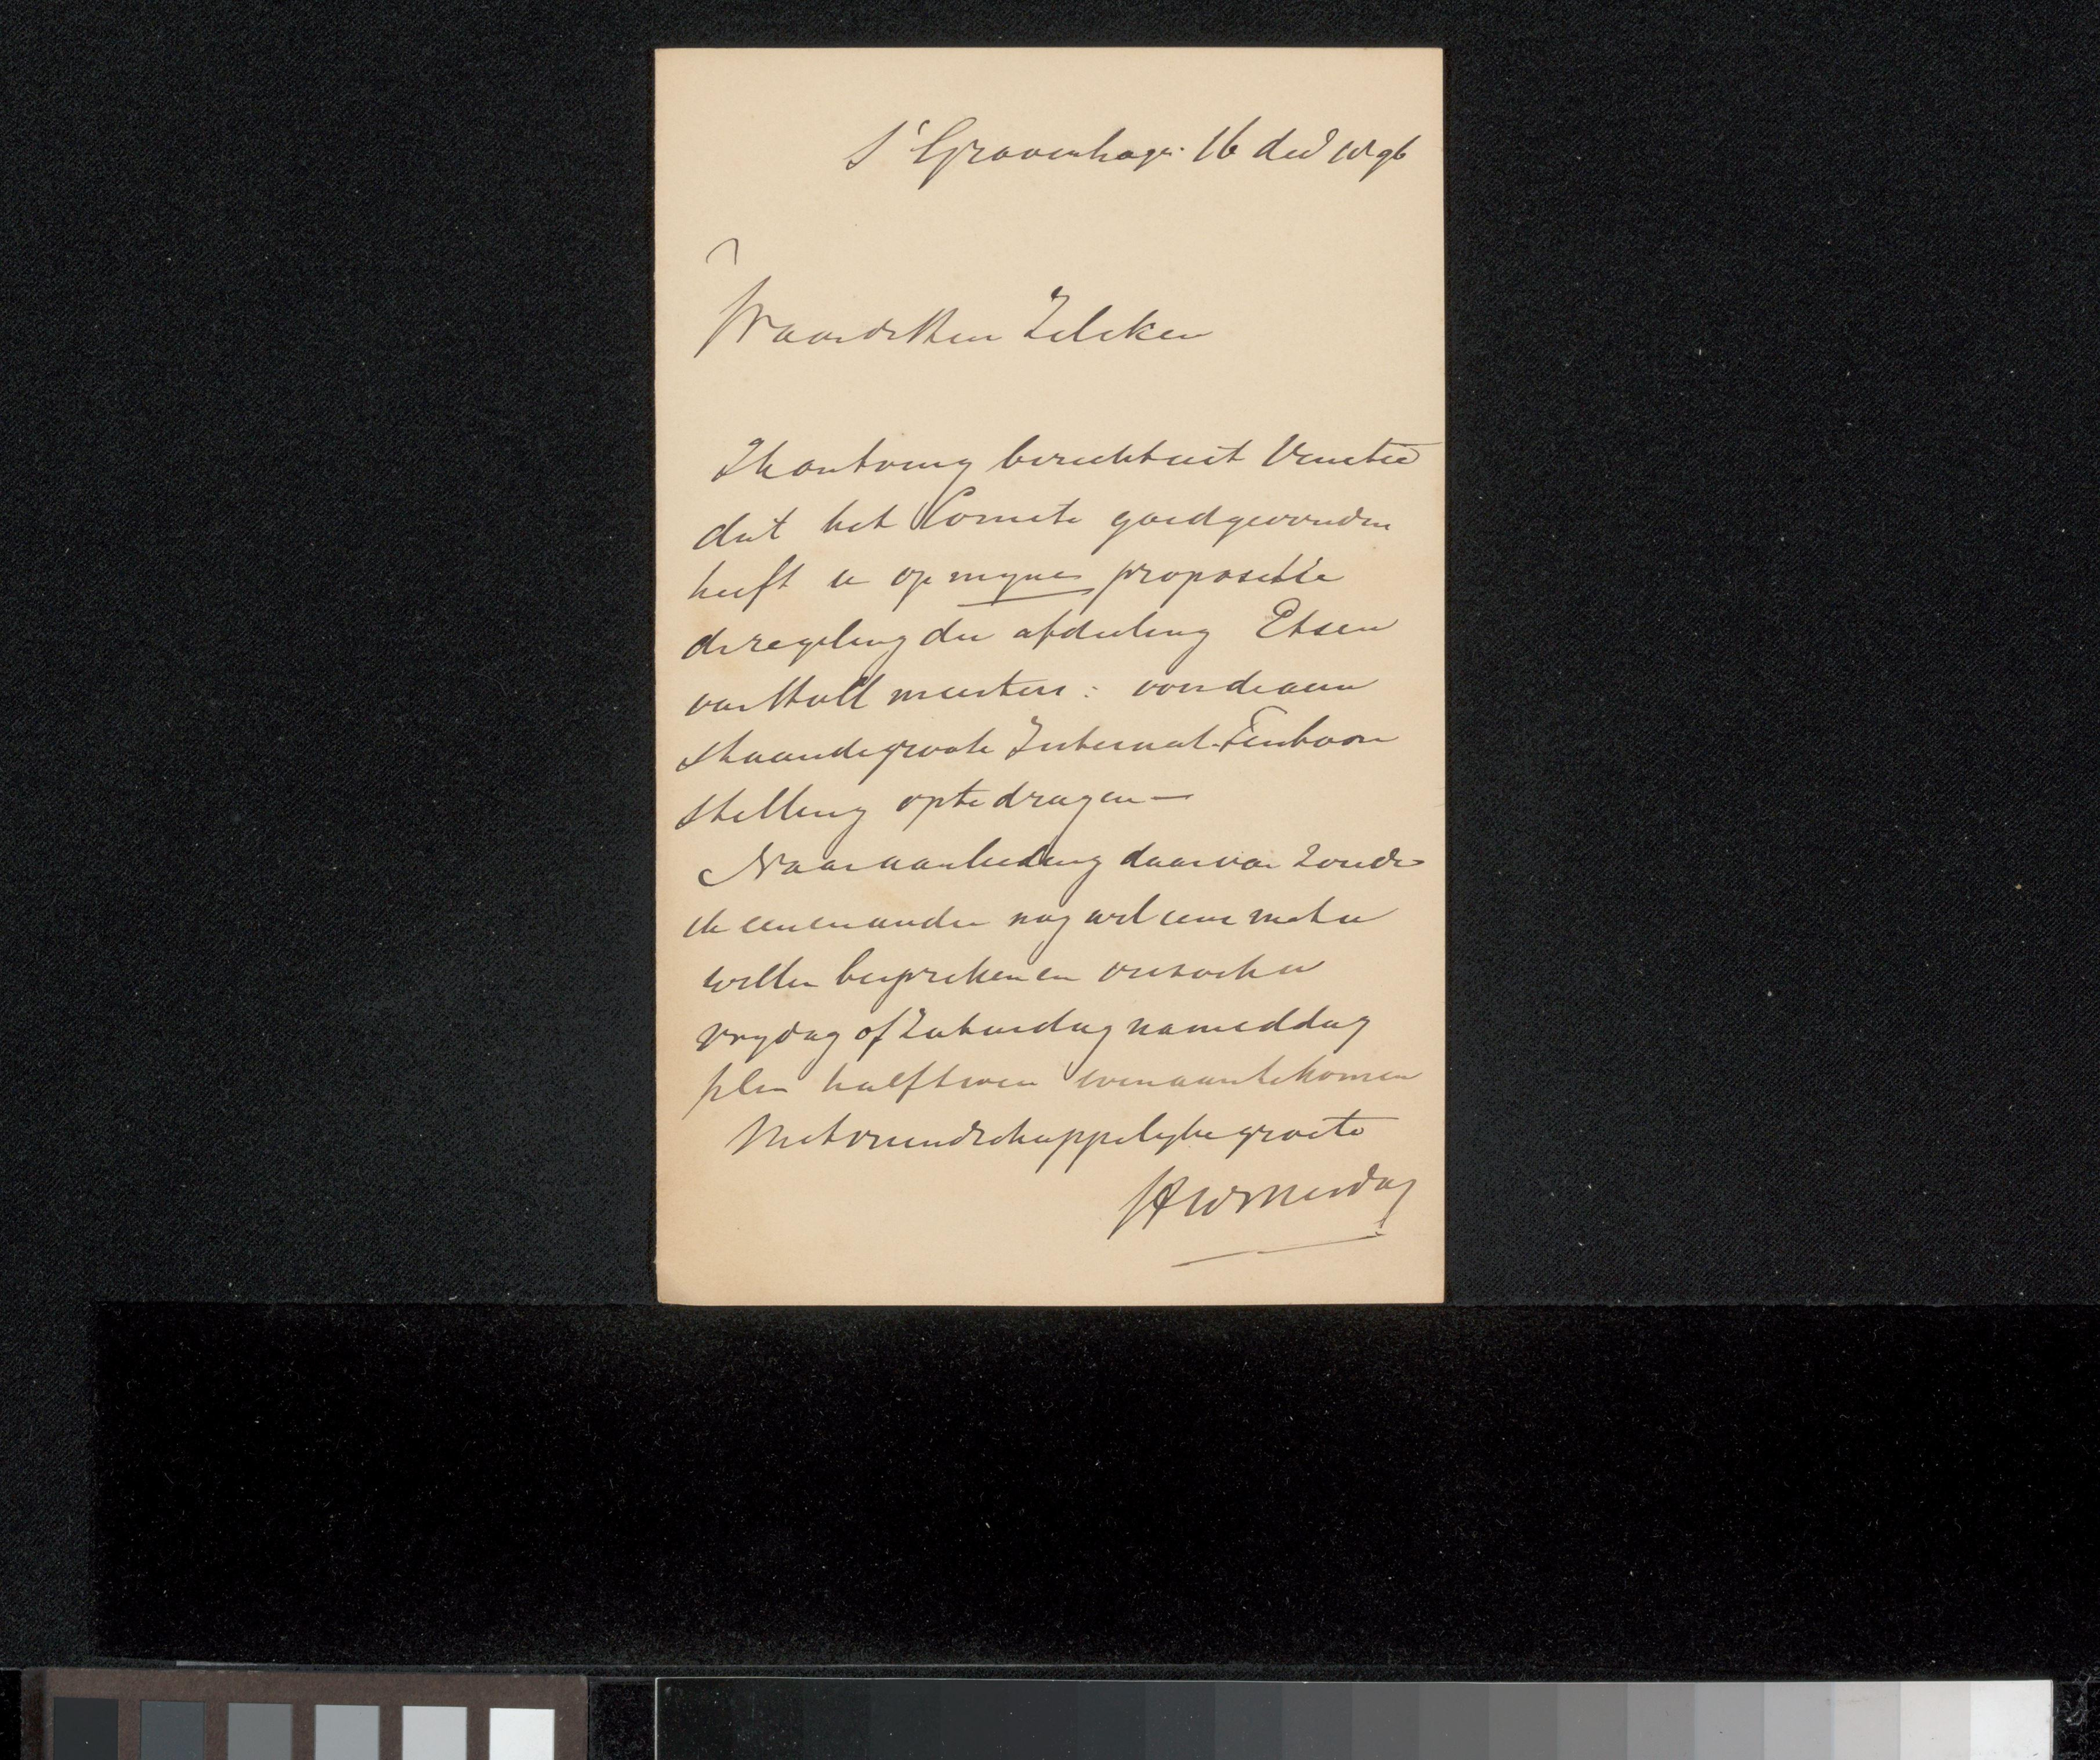 s'Gravenhage. 16 dec 1896
Waarde Heer Zilcken
Ik ontving bericht uit Venetie
dat het Comite goedgevonden
heeft u op myne propositie
de regeling der afdeeling Etsen
van Holl meesters: voor de aan
staande groote Internat. Tentoon
stelling opte dragen—
Naar aanleiding daarvan zoude
ik een en ander nog wel eens met u
willen bespreken en verzoek u
vrydag of Zaturdag namiddag
plm half twee even aan te komen
Met vriendschappelyke groete
HW Mesdag